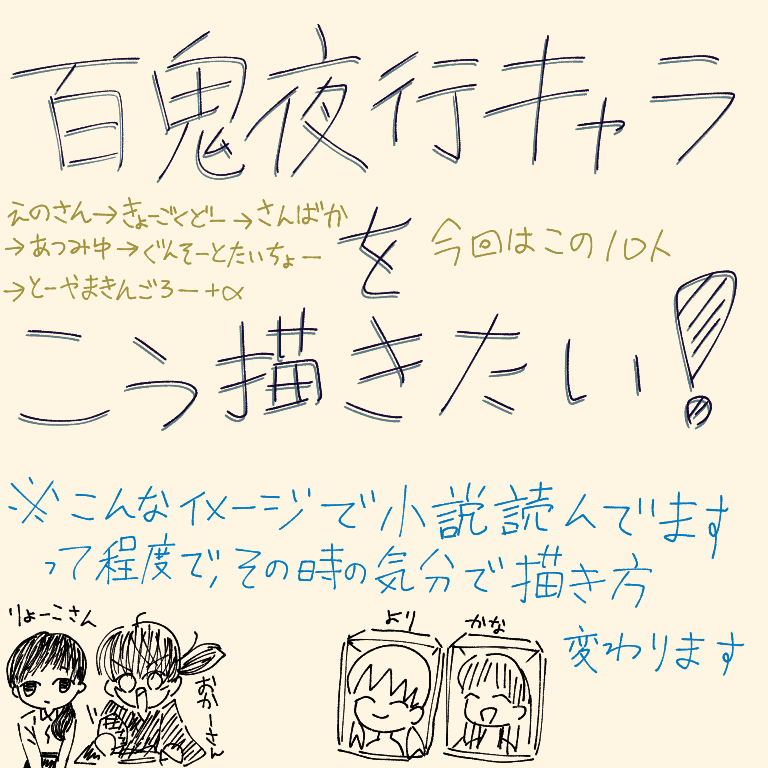 百鬼夜行キャラ
えのさん→きょーごくどー→さんばか
→あつみ中→ぐんそーとたいちょー
→とーやまきんごろー+α
を
今回はこの10人
こう描きたい!
※こんなイメージで小説読んでます
って程度で、その時の気分で描き方
変わります
りょーこさん
おかーさん
より
かな